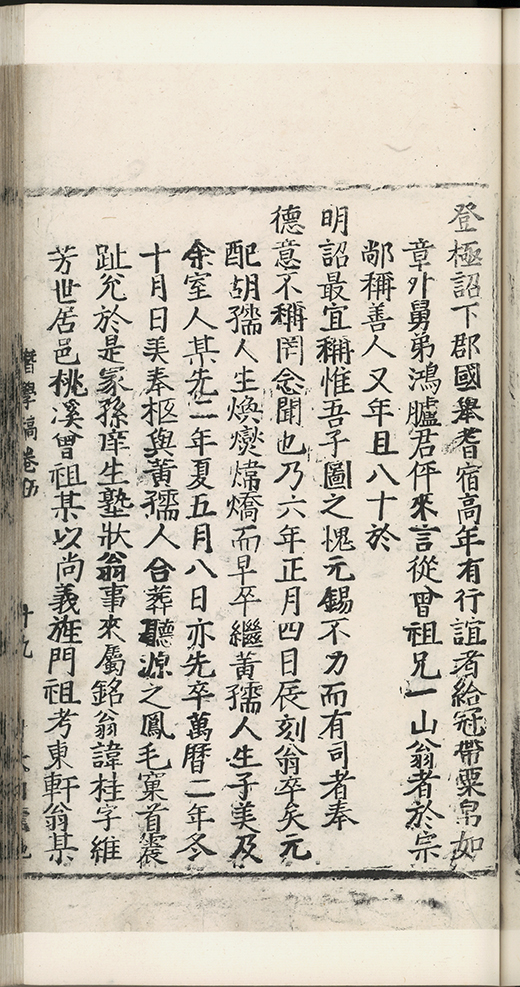 登極詔下郡國舉耆宿高年有行誼者給冠帶粟帛如
章外舅弟鴻臚君伻來言從曾祖兄一山翁者於宗
鄰稱善人又年且八十於
明詔最宜稱惟吾子圖之愧元錫不力而有司者奉
德意不稱罔念聞也乃六年正月四日辰刻翁卒矣元
配胡孺人生煥爕煒燆而早卒繼黃孺人生子美及
余室人某先二年夏五月八日亦先卒萬曆二年冬
十月日美奉柩與黃孺人合葬聽源之鳳毛窠首震
趾兊於是冢孫庠生塾狀翁事來屬銘翁諱桂字維
芳世居邑桃溪曾祖某以尚義旌門祖考東軒翁某
潛學稿卷
十九